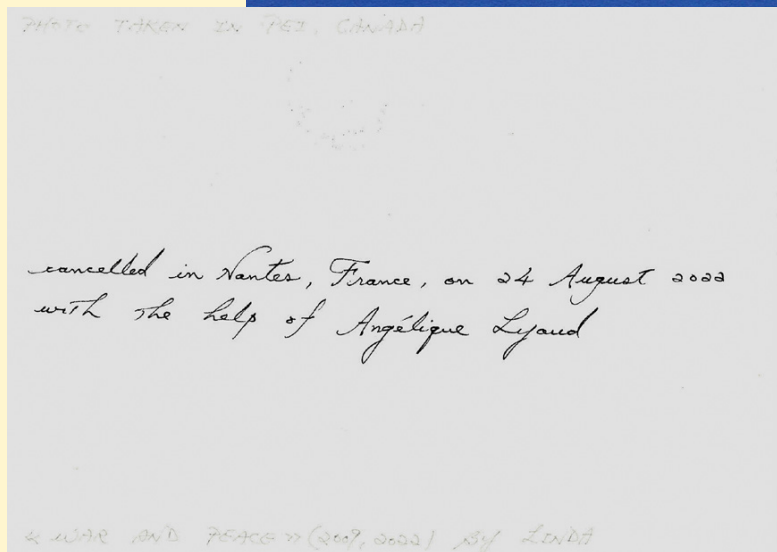 PHOTO TAKEN IN PEI, CANADA
cancelled in Nantes, France, on 24 August 2022
with the help of Angélique Lyaud
« WAR AND PEACE » (2009, 2022) BY LINDA